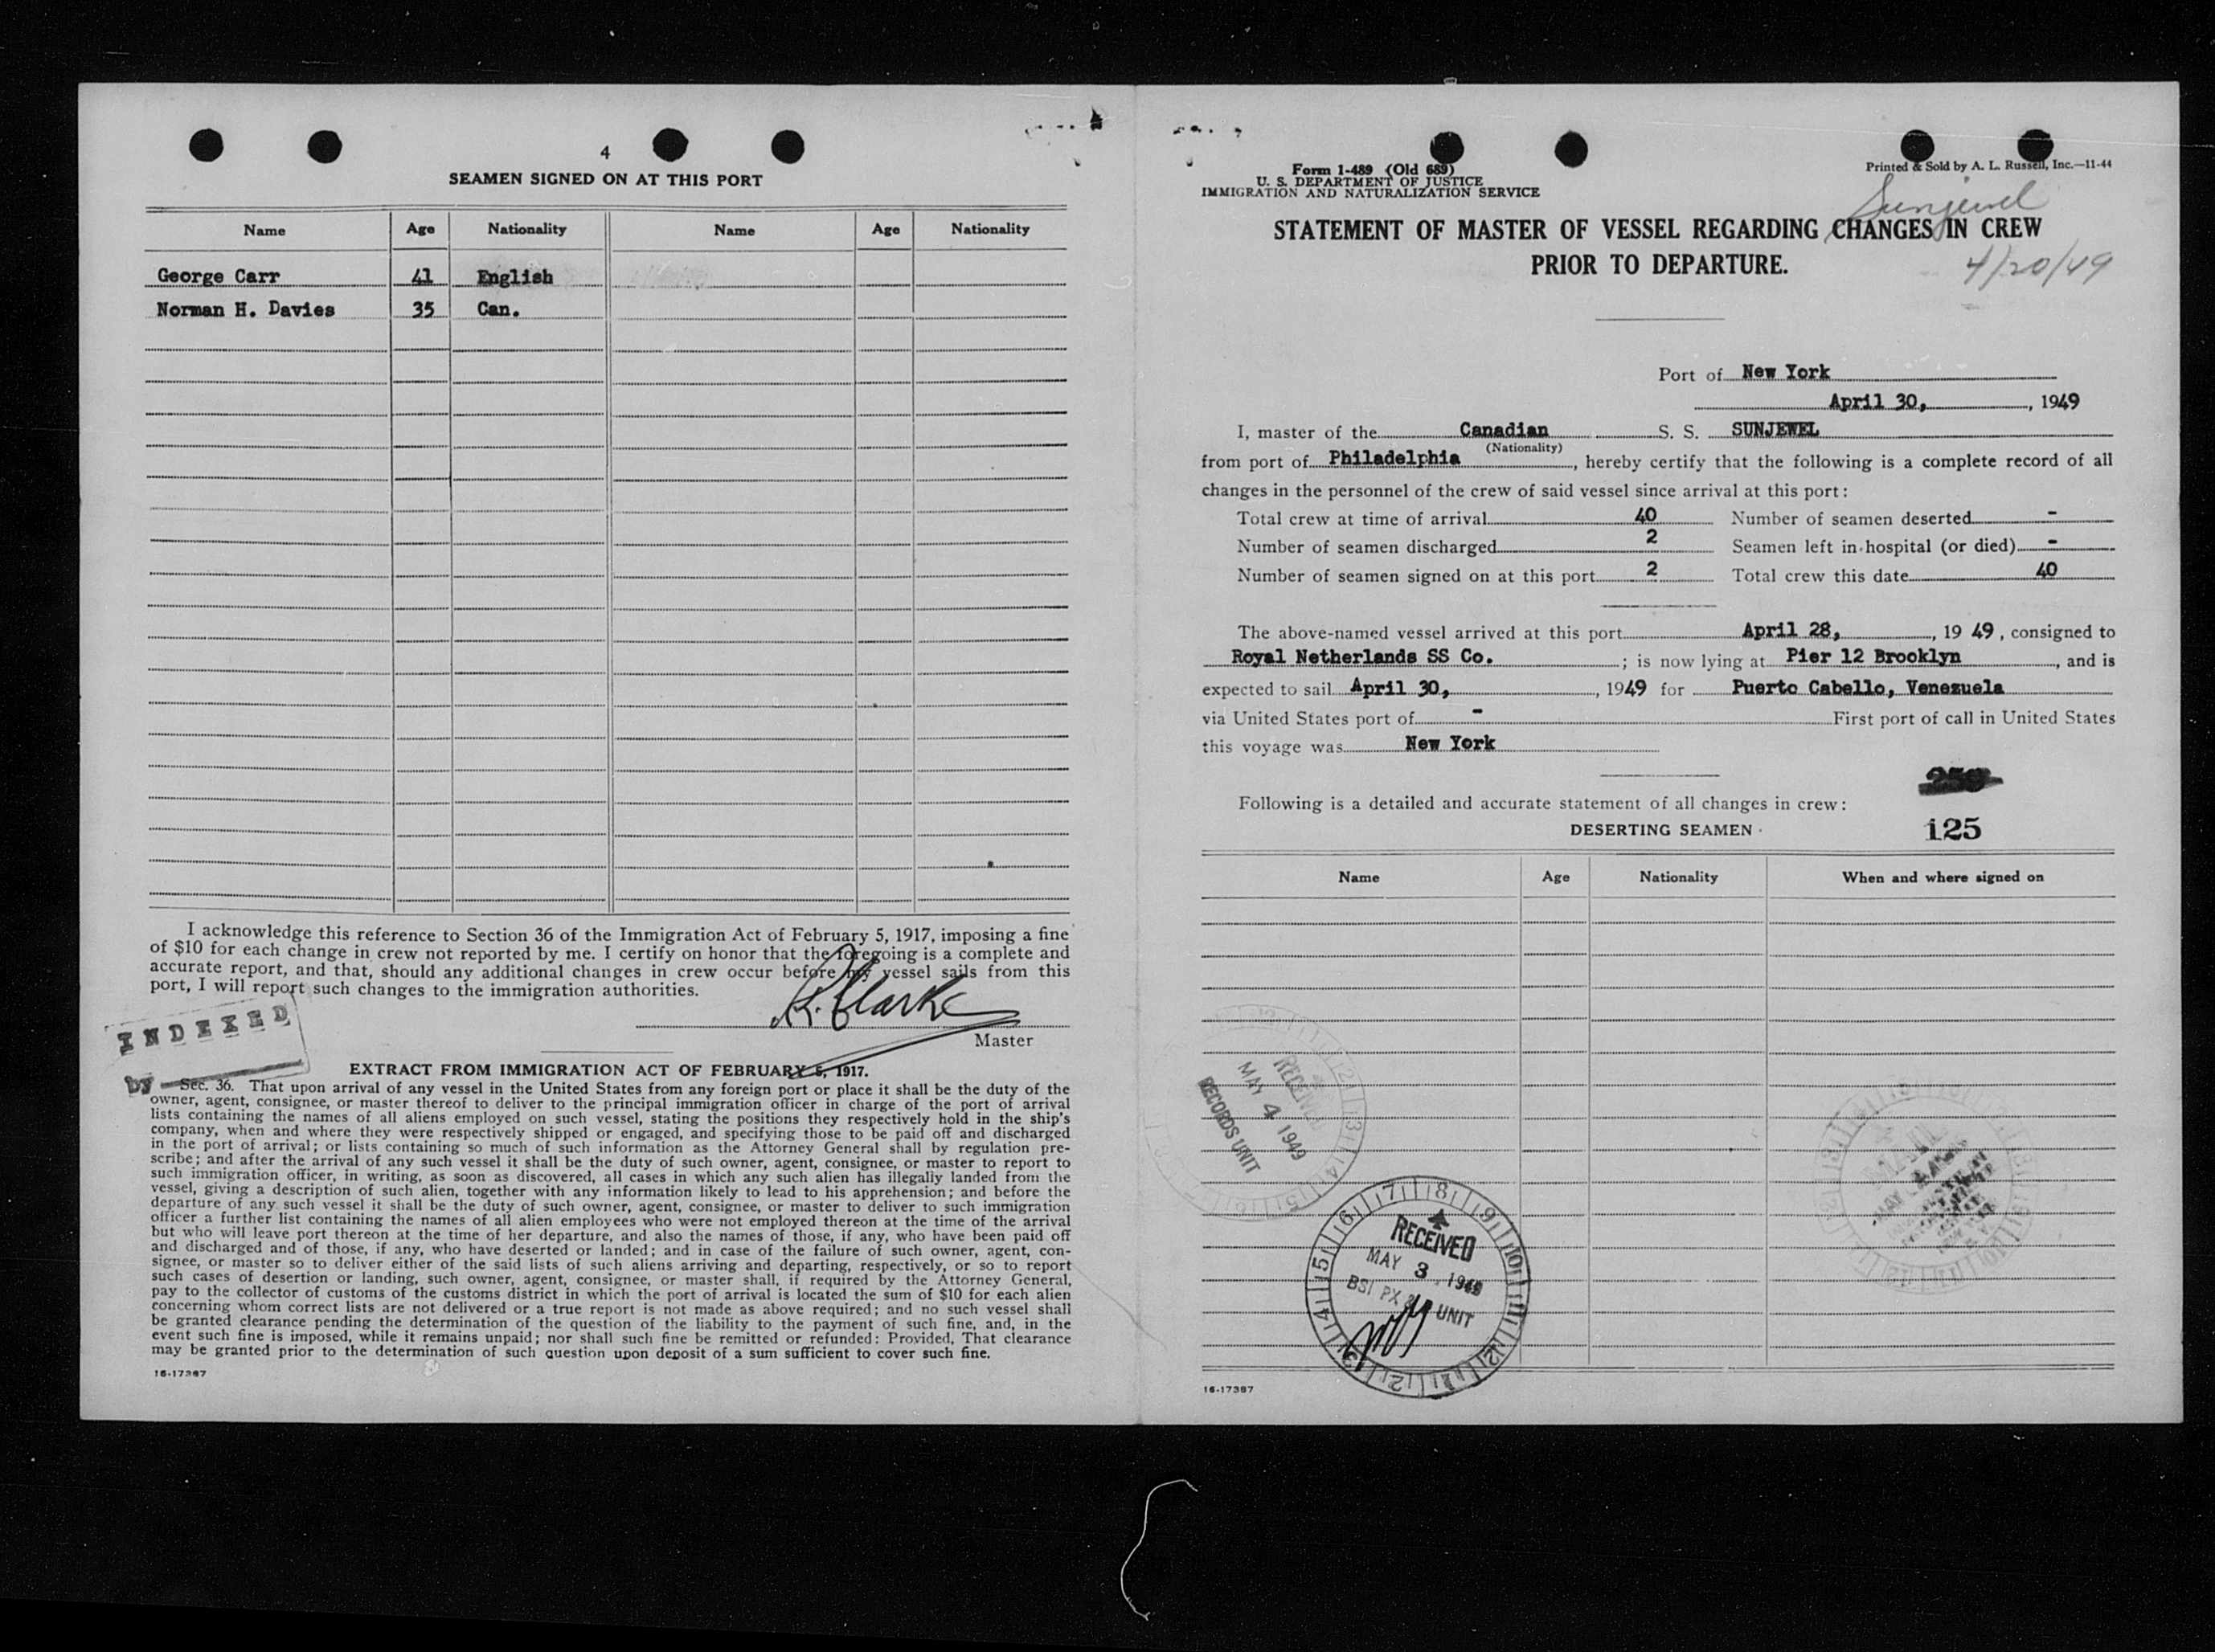 4
SEAMEN SIGNED ON AT THIS PORT
Name Age Nationality Name Age Nationality
George Carr 41 English
Norman H. Davies 35 Can.
I acknowledge this reference to Section 36 of the Immigration Act of February 5, 1917, imposing a fine
of $10 for each change in crew not reported by me. I certify on honor that the foregoing is a complete and
accurate report, and that, should any additional changes in crew occur before my vessel sails from this
port, I will report such changes to the immigration authorities.
INDEXED
Clarke
Master
EXTRACT FROM IMMIGRATION ACT OF FEBRUARY 5, 1917.
by
Sec. 36. That upon arrival of any vessel in the United States from any foreign port or place it shall be the duty of the
owner, agent, consignee, or master thereof to deliver to the principal immigration officer in charge of the port of arrival
lists containing the names of all aliens employed on such vessel, stating the positions they respectively hold in the ship's
company, when and where they were respectively shipped or engaged, and specifying those to be paid off and discharged
in the port of arrival; or lists containing so much of such information as the Attorney General shall by regulation pre-
scribe; and after the arrival of any such vessel it shall be the duty of such owner, agent, consignee, or master to report to
such immigration officer, in writing, as soon as discovered, all cases in which any such alien has illegally landed from the
vessel, giving a description of such alien, together with any information likely to lead to his apprehension; and before the
departure of any such vessel it shall be the duty of such owner, agent, consignee, or master to deliver to such immigration
officer a further list containing the names of all alien employees who were not employed thereon at the time of the arrival
but who will leave port thereon at the time of her departure, and also the names of those, if any, who have been paid off
and discharged and of those, if any, who have deserted or landed; and in case of the failure of such owner, agent, con-
signee, or master so to deliver either of the said lists of such aliens arriving and departing, respectively, or so to report
such cases of desertion or landing, such owner, agent, consignee, or master shall, if required by the Attorney General,
pay to the collector of customs of the customs district in which the port of arrival is located the sum of $10 for each alien
concerning whom correct lists are not delivered or a true report is not made as above required; and no such vessel shall
be granted clearance pending the determination of the question of the liability to the payment of such fine, and, in the
event such fine is imposed, while it remains unpaid; nor shall such fine be remitted or refunded: Provided, That clearance
may be granted prior to the determination of such question upon deposit of a sum sufficient to cover such fine.
16-17387
Form 1-489 (Old 689)
U. S. DEPARTMENT OF JUSTICE
IMMIGRATION AND NATURALIZATION SERVICE
Printed & Sold by A. L. Russell, Inc.—11-44
Sunjewel
STATEMENT OF MASTER OF VESSEL REGARDING CHANGES IN CREW
PRIOR TO DEPARTURE.
4/20/49
Port of New York
April 30, , 1949
I, master of the Canadian S. S. SUNJEWEL
(Nationality)
from port of Philadelphia , hereby certify that the following is a complete record of all
changes in the personnel of the crew of said vessel since arrival at this port:
Total crew at time of arrival 40 Number of seamen deserted -
Number of seamen discharged 2 Seamen left in hospital (or died) -
Number of seamen signed on at this port 2 Total crew this date 40
The above-named vessel arrived at this port April 28, , 19 49 , consigned to
Royal Netherlands SS Co. ; is now lying at Pier 12 Brooklyn , and is
expected to sail April 30, , 1949 for Puerto Cabello, Venezuela
via United States port of - First port of call in United States
this voyage was New York
Following is a detailed and accurate statement of all changes in crew:
DESERTING SEAMEN
125
Name Age Nationality When and where signed on
RECEIVED
MAY 4 1949
RECORDS UNIT
RECEIVED
MAY 3 1949
BSI PX & UNIT
16-17387